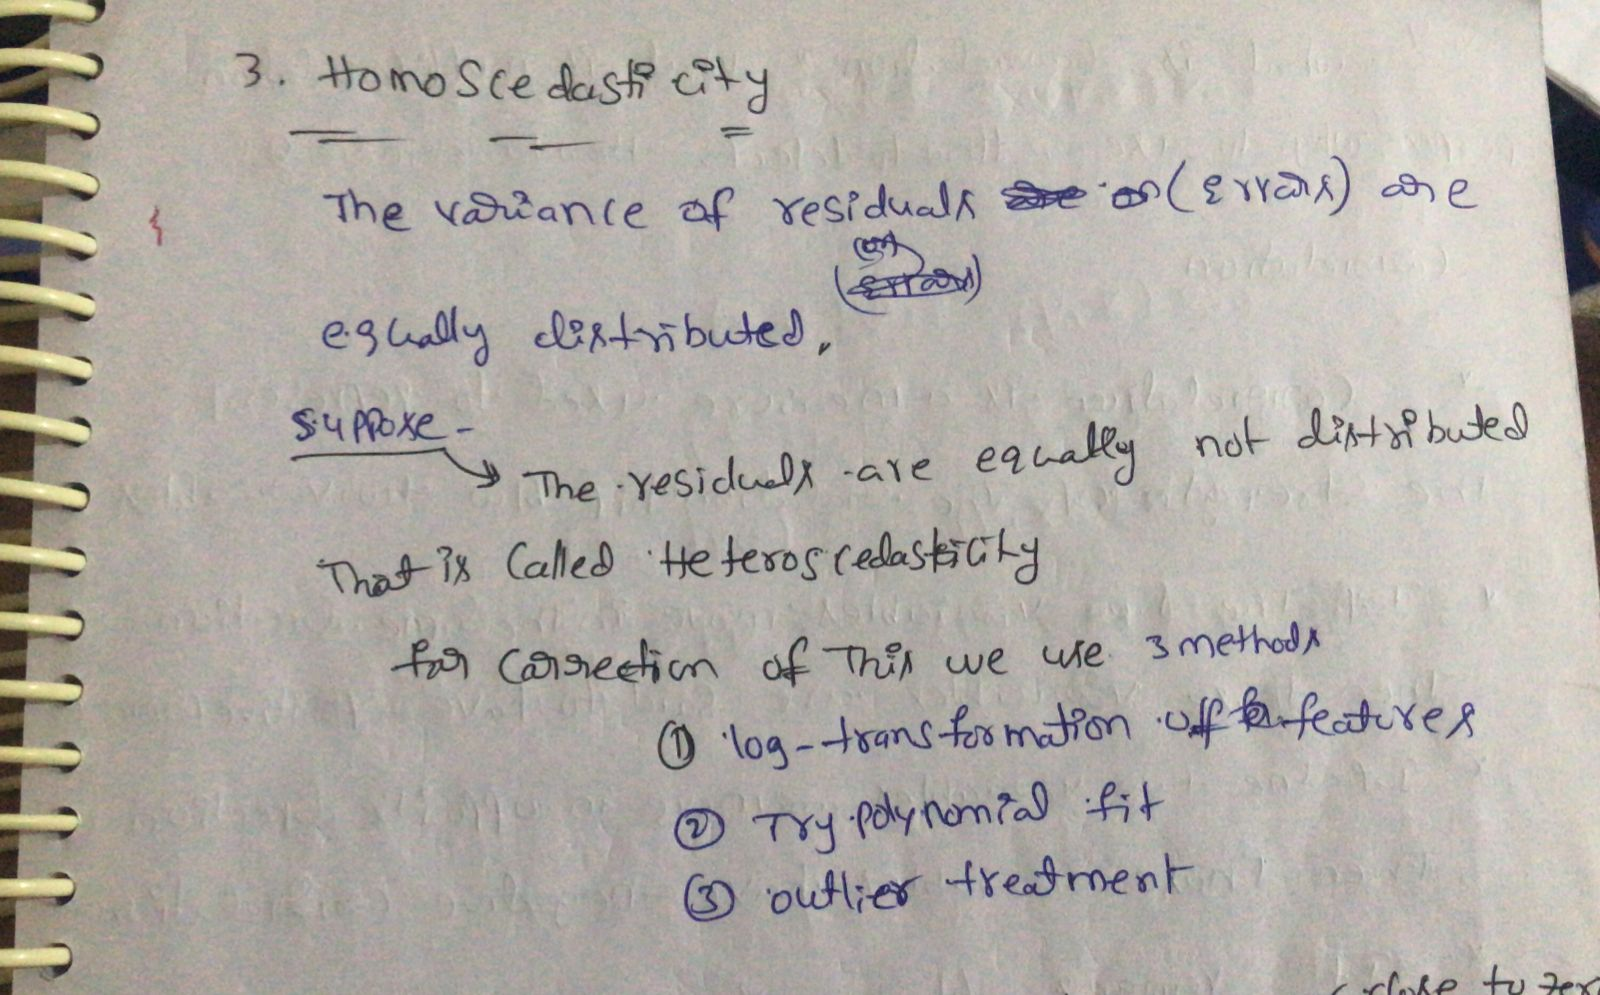 3. Homoscedasticity
The variance of residuals or (Errors) are
(or)
(errors)
equally distributed.
Suppose -
The residuals are equally not distributed
That is Called Heteroscedasticity
for Correction of This we use 3 methods
① log-transformation of features
② Try polynomial fit
③ outlier treatment
close to zero